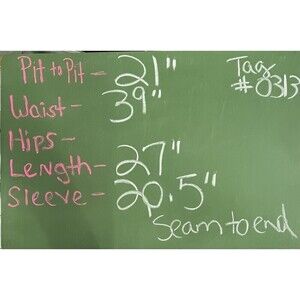 Pit to Pit - 21"
Tag
#0313
Waist - 39"
Hips -
Length - 27"
Sleeve - 20.5"
Seam to end